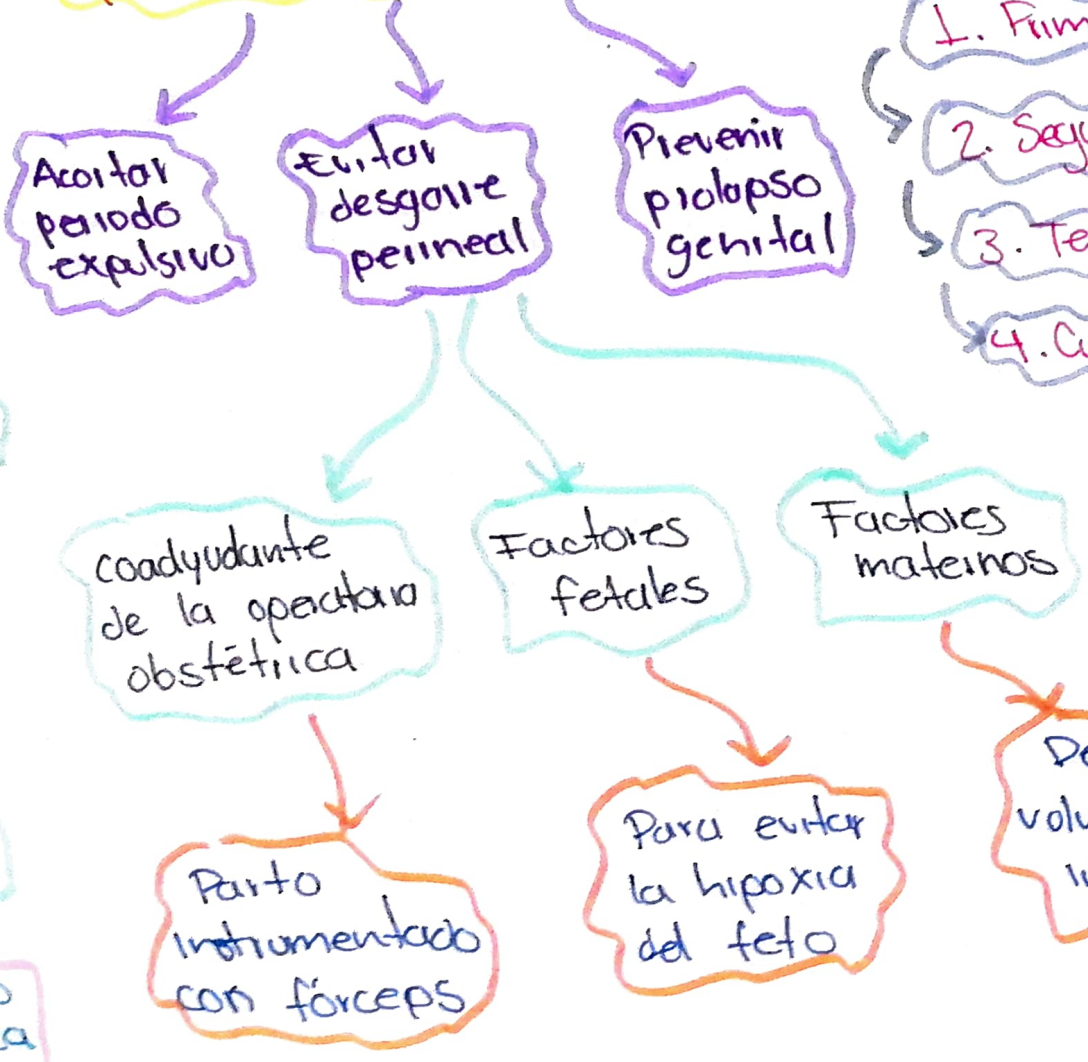 Acortar
periodo
expulsivo
Evitar
desgarre
perineal
Prevenir
prolapso
genital
1.
2.
3.
4.
coadyudante
de la
obstétrica
Factores
fetales
Factores
maternos
Parto
instrumentado
con fórceps
Para evitar
la hipoxia
del feto